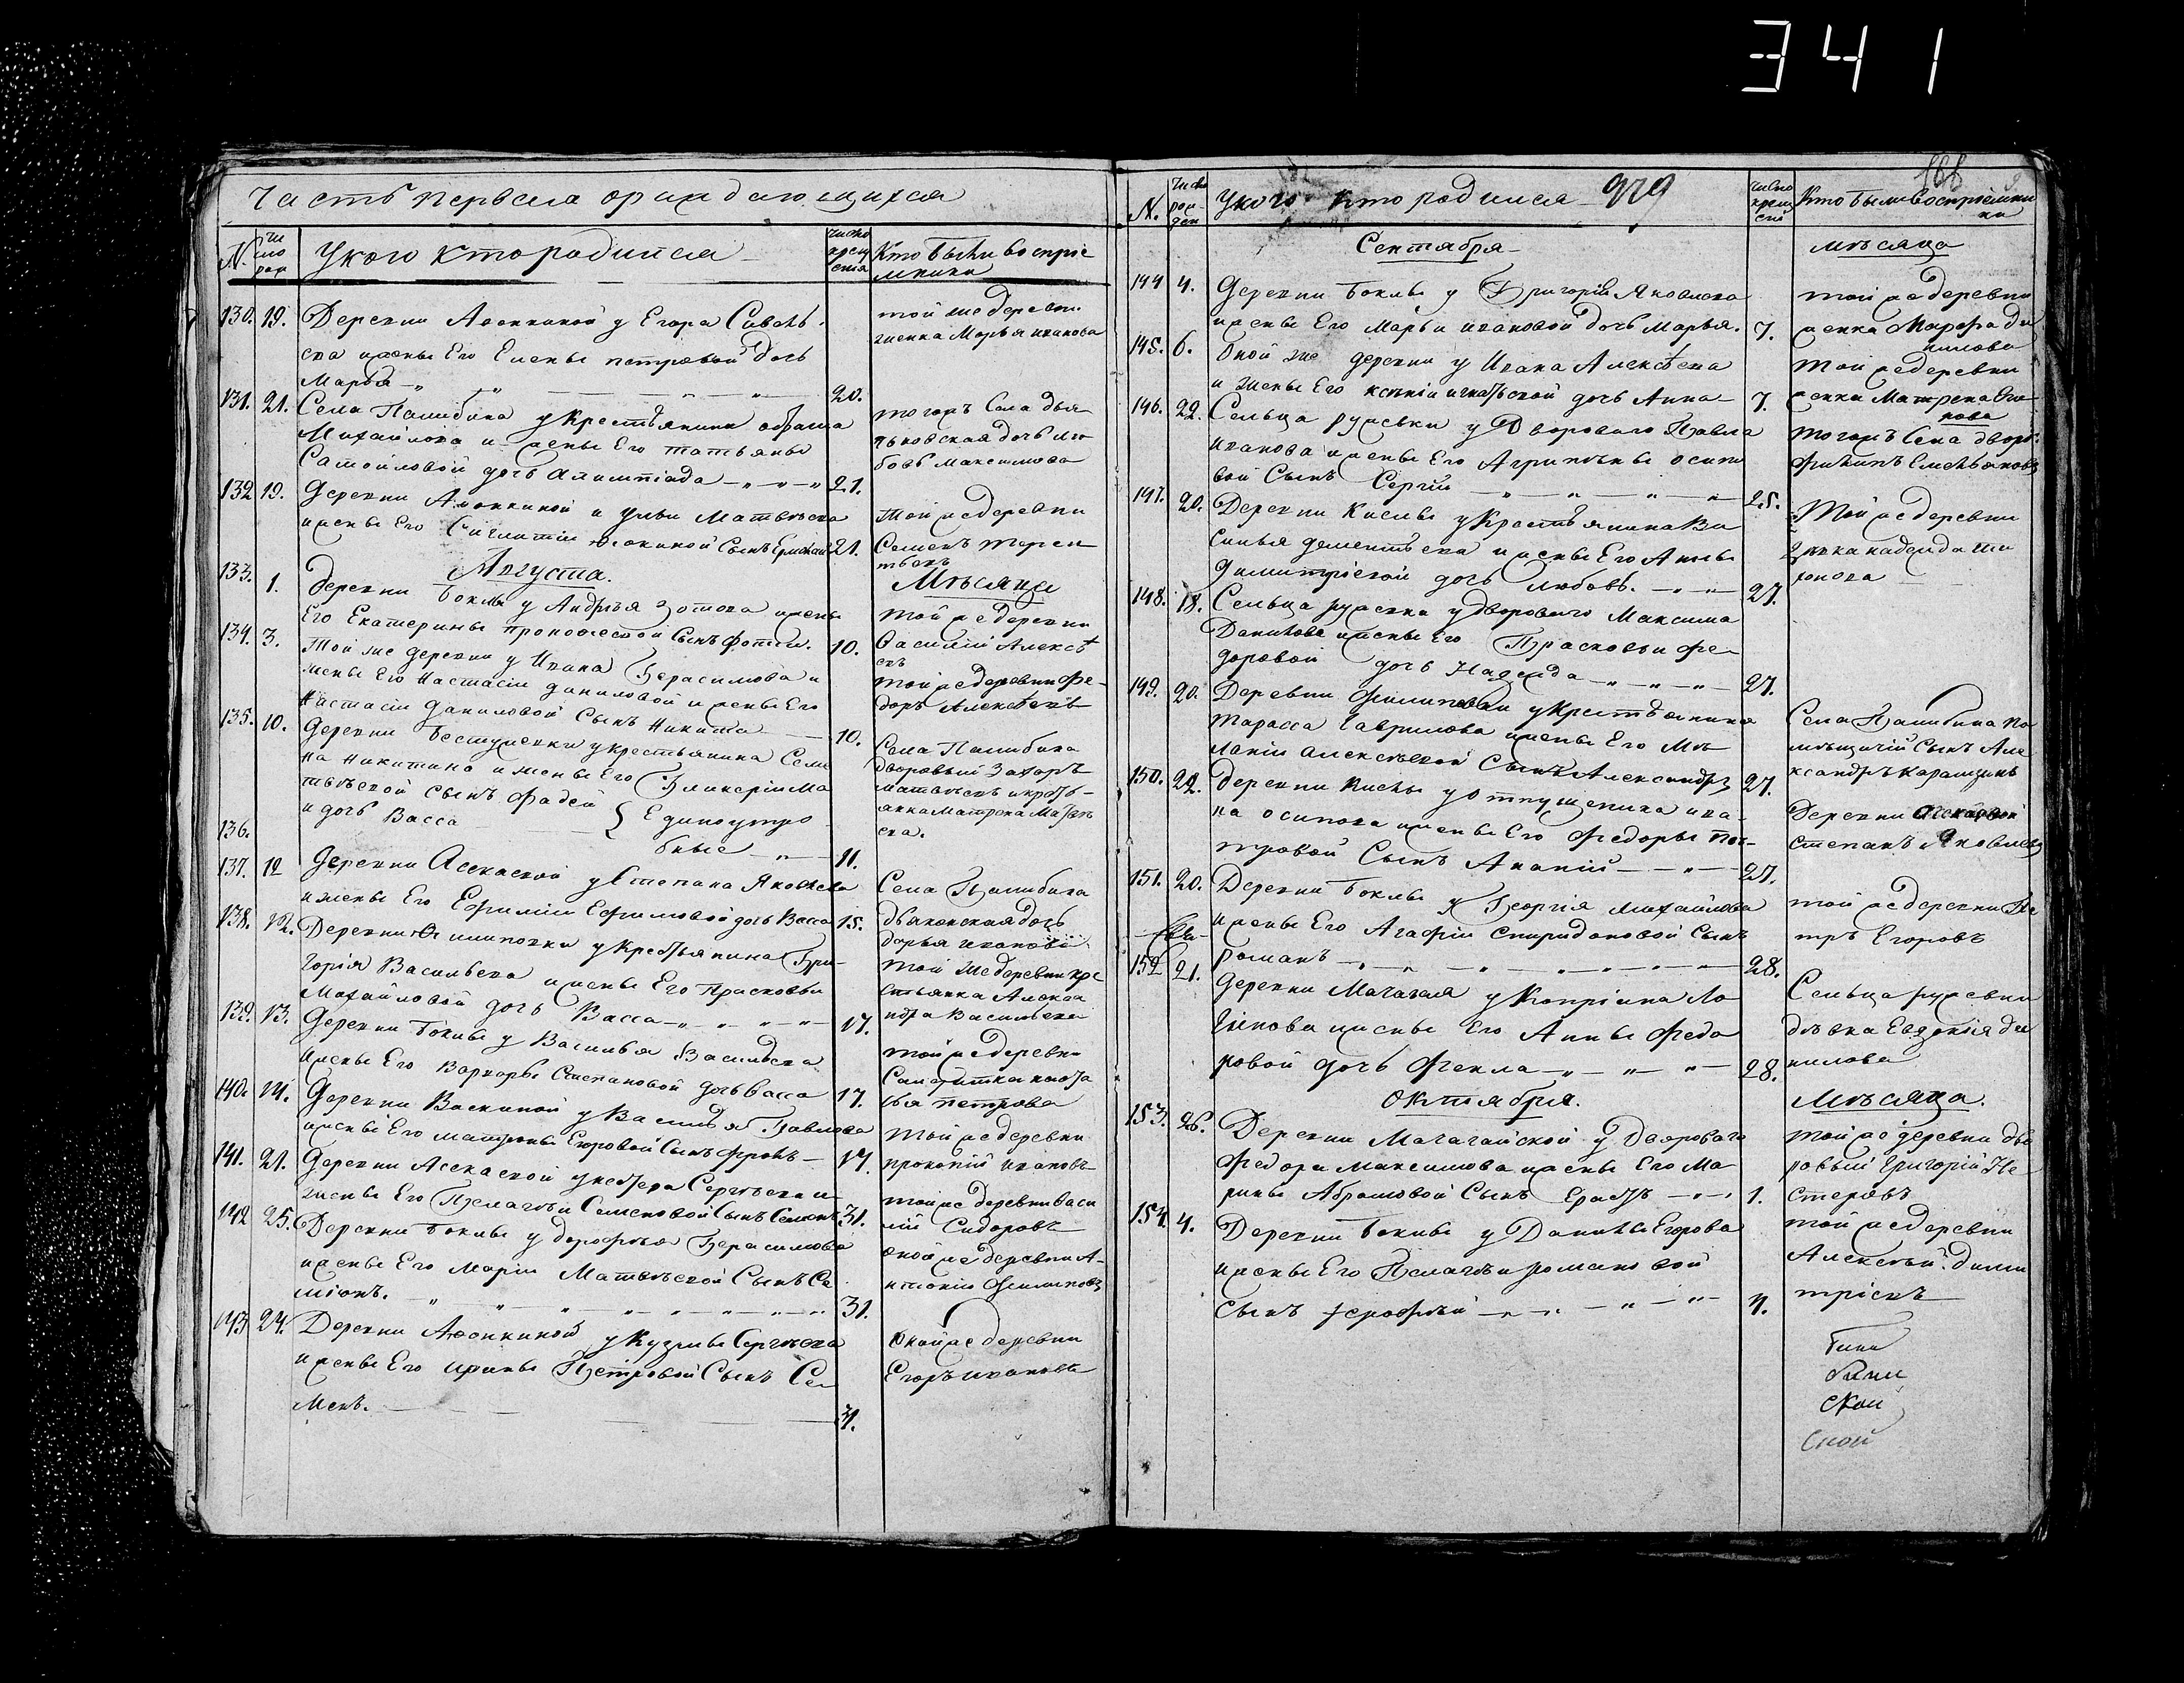 341
Часть первая о рождающихся
N. Чи сло рож
У кого кто родился
число крещ ения
Кто были воспріе мники
130. 19. Деревни Авонкиной у Егора Савель
ева и жены Его Елены петровой дочь
Марья 20.
той же деревни
женка Марья иванова
131. 21. Села Палибина у крестьянина
Михайлова и жены Его татьяны
Самойловой дочь алимпіада 21.
тогожъ Села дья
чьковская дочь лю
бовь Максимова
132 19. Деревни Авонкиной и ульи Матвѣева
и жены Его Фокиной Сынъ 21.
Той же деревни
Семенъ терен
тьевъ
Августа.
Мѣсяца
133. 1. деревни Боклы у Андрѣя Зотова и жены
Его Екатерины прокофьевой Сынъ фотій. 10.
той же деревни
Василій Алексѣ
евъ
134. 3. Той же деревни у Ивана Герасимова и
жены Его Настасіи даниловой и жены Его
Настасіи даниловой Сынъ Никита 10.
той же деревни фе
доръ Алексѣевъ
135. 10. Деревни Бестужевки у крестьянина Семе
на Никитина и жены Его Гликеріи Ма
твѣевой Сынъ фадей
136. и дочь Васса } Единоутро
бные 11.
Села Палибина
дворовый Захаръ
матвѣевъ и кресть
янка Матрена Матвѣ
ева.
137. 12 Деревни Асекаевой у Степана Яковлева
и жены Его Ефиміи Ефимовой дочь Васса 15.
Села Палибина
дьяконская дочь
дарья иванова
138. 12. Деревни Филиповки у крестьянина Гри
горія Васильева и жены Его Прасковьи
Михайловой дочь Васса 17.
той же деревни кре
стьянка Алекса
ндра Васильева
139. 13. Деревни Боклы у Василья Васильева
и жены Его Варвары Степановой дочь Васса 17.
той же деревни
Салдатка наста
сья петрова
140. 14. Деревни Васкиной у Василья Павлова
и жены Его матрены Егоровой Сынъ фролъ 17.
той же деревни
прокопій ивановъ
141. 21. Деревни Асекаевой у нестера Сергѣева и
жены Его Пелагѣи Семеновой Сынъ Семенъ 31.
той же деревни Васи
лій Сидоровъ
142 25. Деревни Боклы у дорофѣя Герасимова
и жены Его Маріи Матвѣевой Сынъ Се
міонъ. 31.
оной же деревни А
нтоній Филиповъ
143 24. Деревни Авонкиной у Кузмы Сергѣева
и жены Его ирины Петровой Сынъ Се
менъ. 31.
Оной же деревни
Егоръ ивановъ
168
N. Число рож ден
У кого кто родился
979
число крещ ені
Кто были воспріемни
ки
Сентября
мѣсяца
144 4. Деревни Боклы у Григорія Яковлева
и жены Его Марьи ивановой дочь Марья. 7.
той же деревни
женка Марфа да
нилова
145. 6. Оной же деревни у Ивана Алексѣева
и жены Его ксеніи игнатьевой дочь Анна 7.
той же деревни
женка Матрена
нова
146. 22. Сельца ружевки у Двороваго Павла
иванова и жены Его Агрипѣны осипо
вой Сынъ Сергій 25.
тогожъ Села дворо:
филипъ Емельяновъ
147. 20. Деревни Кислы у крестьянина Ва
силья дементьева и жены Его Анны
димитріевой дочь любовь. 27.
Той же деревни
дѣвка надежда ти
хонова
148. 18. Сельца ружевки у двороваго Максима
Данилова и жены Его Прасковьи фе
доровой дочь Надежда 27.
149. 20. Деревни Филиповки у крестьянина
тарасса Гаврилова и жены Его Ме
ланіи алексѣевой Сынъ Александръ 27.
Села Палибина по
мѣщичій Сынъ Але
ксандръ карамзинъ
150. 22. деревни Кислы у отпущеника ива
на осипова и жены Его федоры пет
ровой Сынъ Ананій 27.
Деревни асекаевой
Степанъ Яковлевъ
151. 20. Деревни Боклы у Георгія михайлова
и жены Его Агафіи Спиридоновой Сынъ
романъ 28.
той же деревни Пе
тръ Егоровъ
152 21. деревни Мачагая у Капріяна Ло
гинова и жены Его Анны федо
ровой дочь Фекла 28.
Сельца ружевки
дѣвка Евдокія да
нилова
Октября.
Мѣсяца.
153. 26. Деревни Мачагайской у Двороваго
федора Максимова и жены Его Ма
рины Абрамовой Сынъ Ерастъ 1.
той же деревни дво
ровый григорій Не
стеровъ
154. 4. Деревни Боклы у Данилы Егорова
и жены Его Пелагѣи романовой
Сынъ Ерофѣй 4.
той же деревни
Алексѣй дими
тріевъ
скои
Скои